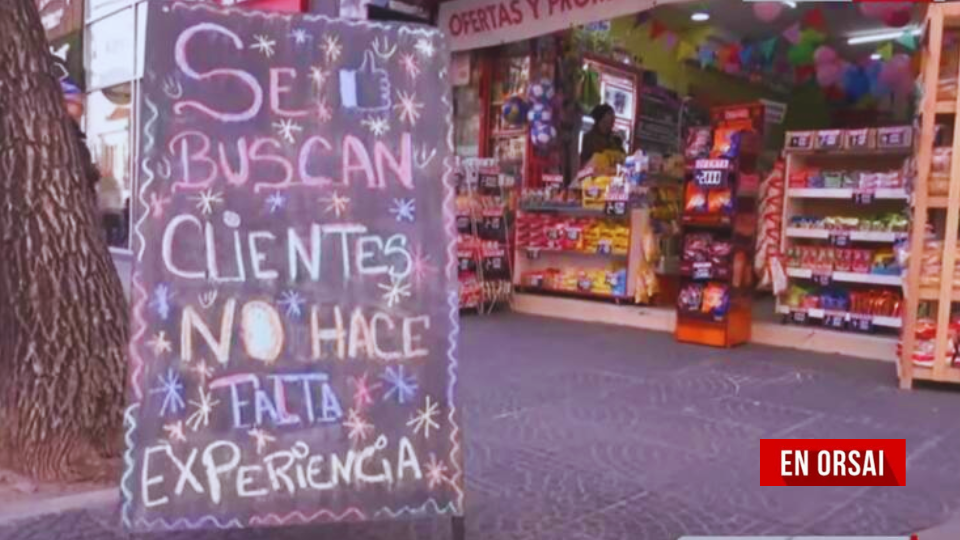 SE
BUSCAN
CLIENTES
NO HACE
FALTA
EXPERIENCIA
OFERTAS Y
EN ORSAI